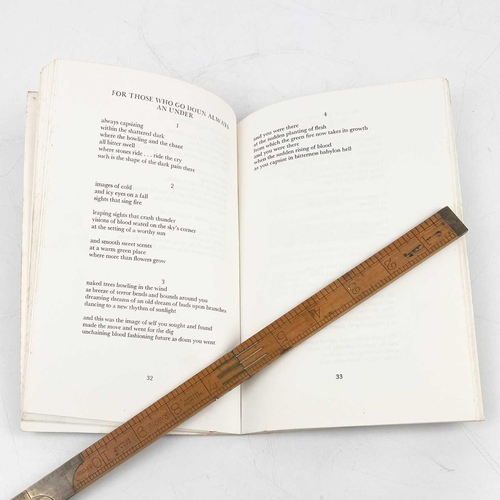 FOR THOSE WHO GO DOUN ALWAYS
AN UNDER
1
always capsizing
within the shattered dark
where the howling and the chase
all bitter swell
where stones ride . . . ride the cry
such is the shape of the dark pain there
2
images of cold
and icy eyes on a fall
sights that sing fire
leaping sights that crash thunder
visions of blood seated on the sky's corner
at the setting of a worthy sun
and smooth sweet scents
at a warm green place
where more than flowers grow
3
naked trees howling in the wind
as breeze of terror bends and bounds around you
dreaming dreams of an old dream of buds upon branches
dancing to a new rhythm of sunlight
and this was the image of self you sought and found
made the move and went for the dig
unchaining blood fashioning future as doun you went
32
4
and you were there
at the sudden planting of flesh
from which the green fire now takes its growth
and you were there
when the sudden rising of blood
as you capsize in bitterness babylon hell
33